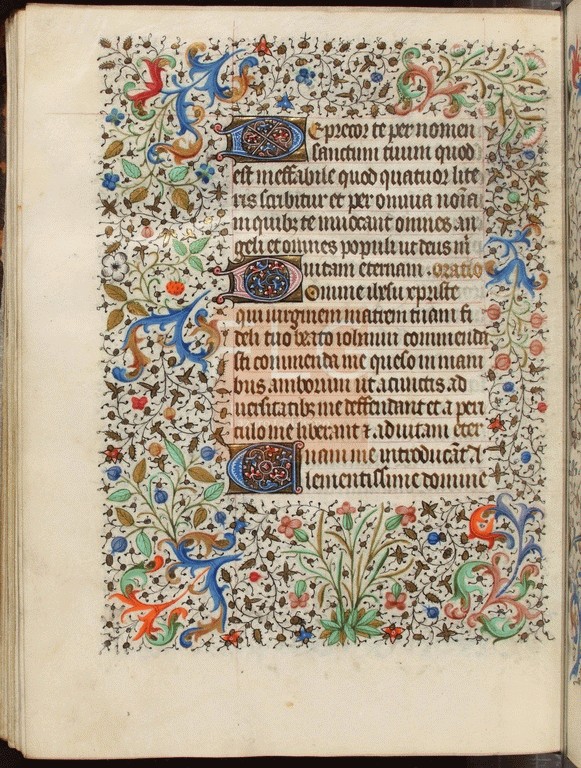 Deprecor te per nomen
sanctum tuum quod
est ineffabile quod quatuor lite
ris scribitur et per omnia noīa
in quibz te invocant omnes an
geli et omnes populi ut deus in
vitam eternam. oratio
Domine ihesu xpriste
qui virginem matrem tuam fi
deli tuo beato iohanni commenda
sti commenda me queso in mani
bus amborum ut a cunctis ad
versitatibz me deffendant et a peri
culo me liberant et ad vitam eter
nam me introducāt A
Clementissime domine